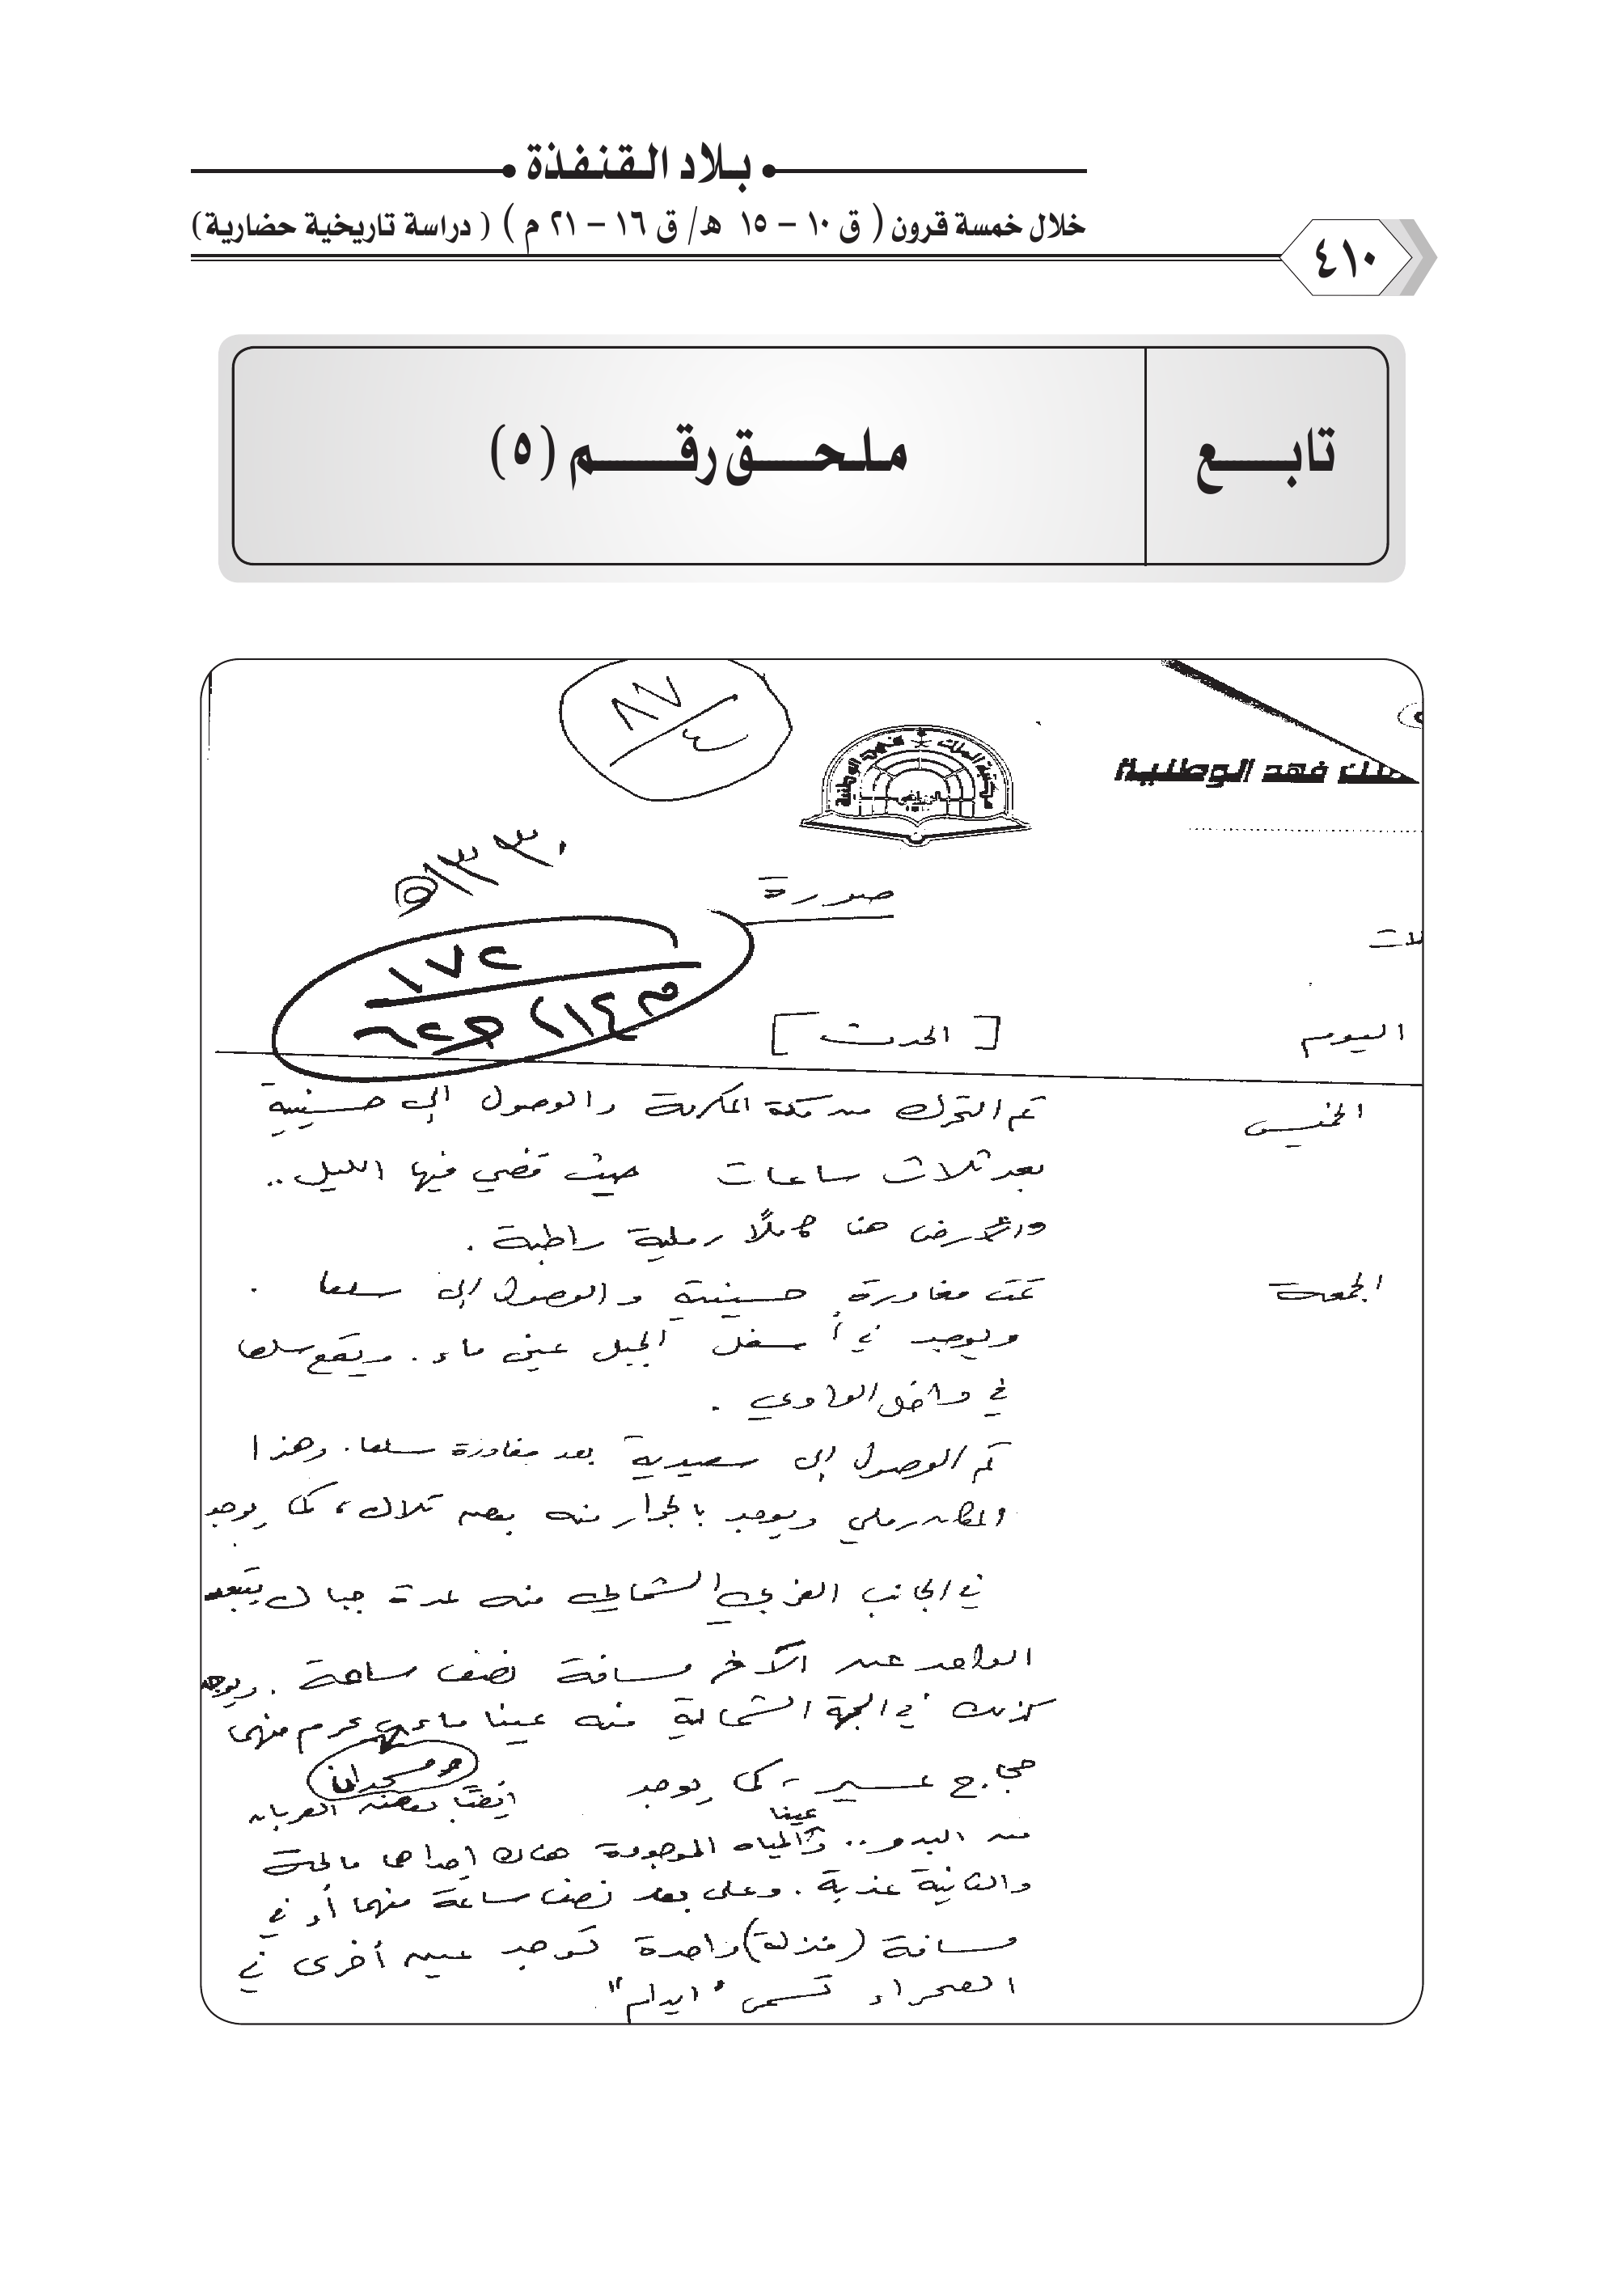 بلاد القنفذة
خلال خمسة قرون ( ق ١٠ – ١٥ هـ/ ق ١٦ – ٢١ م ) ( دراسة تاريخية حضارية)
٤١٠
تابع
ملحق رقم (٥)
٨٧
٤
مكتبة الملك فهد الوطنية
الملك فهد الوطنية
صورة
١٧٢
اليوم [ الحدث ]
الخميس تم التحرك من مكة المكرمة والوصول إلى حسينية
بعد ثلاث ساعات حيث قضي فيها الليل ..
والأرض هنا رملية راطبة .
الجمعة تمت مغادرة حسينية والوصول إلى سلعا .
ويوجد في أسفل الجبل عين ماء . ويقع سلعا
في داخل الوادي .
تم الوصول إلى سعيدية بعد مغادرة سلعا . وهذا
المكان رملي ويوجد بالجوار منه بعض تلال ، كما يوجد
في الجانب الغربي الشمالي منه عدة جبال يتبعد
الواحد عن الآخر مسافة نصف ساعة . ويوجد
كذلك في الجهة الشمالية منه عينا ماء يحرم منهما
حجاج عسير ، كما يوجد أيضًا بعض العربان
ومسجدان
من البدو .. وعينا المياه الموجودة هناك إحداها مالحة
والثانية عذبة . وعلى بعد نصف ساعة منهما أو في
مسافة (منزلة) واحدة توجد عين أخرى في
الصحراء تسمى "ايدام"